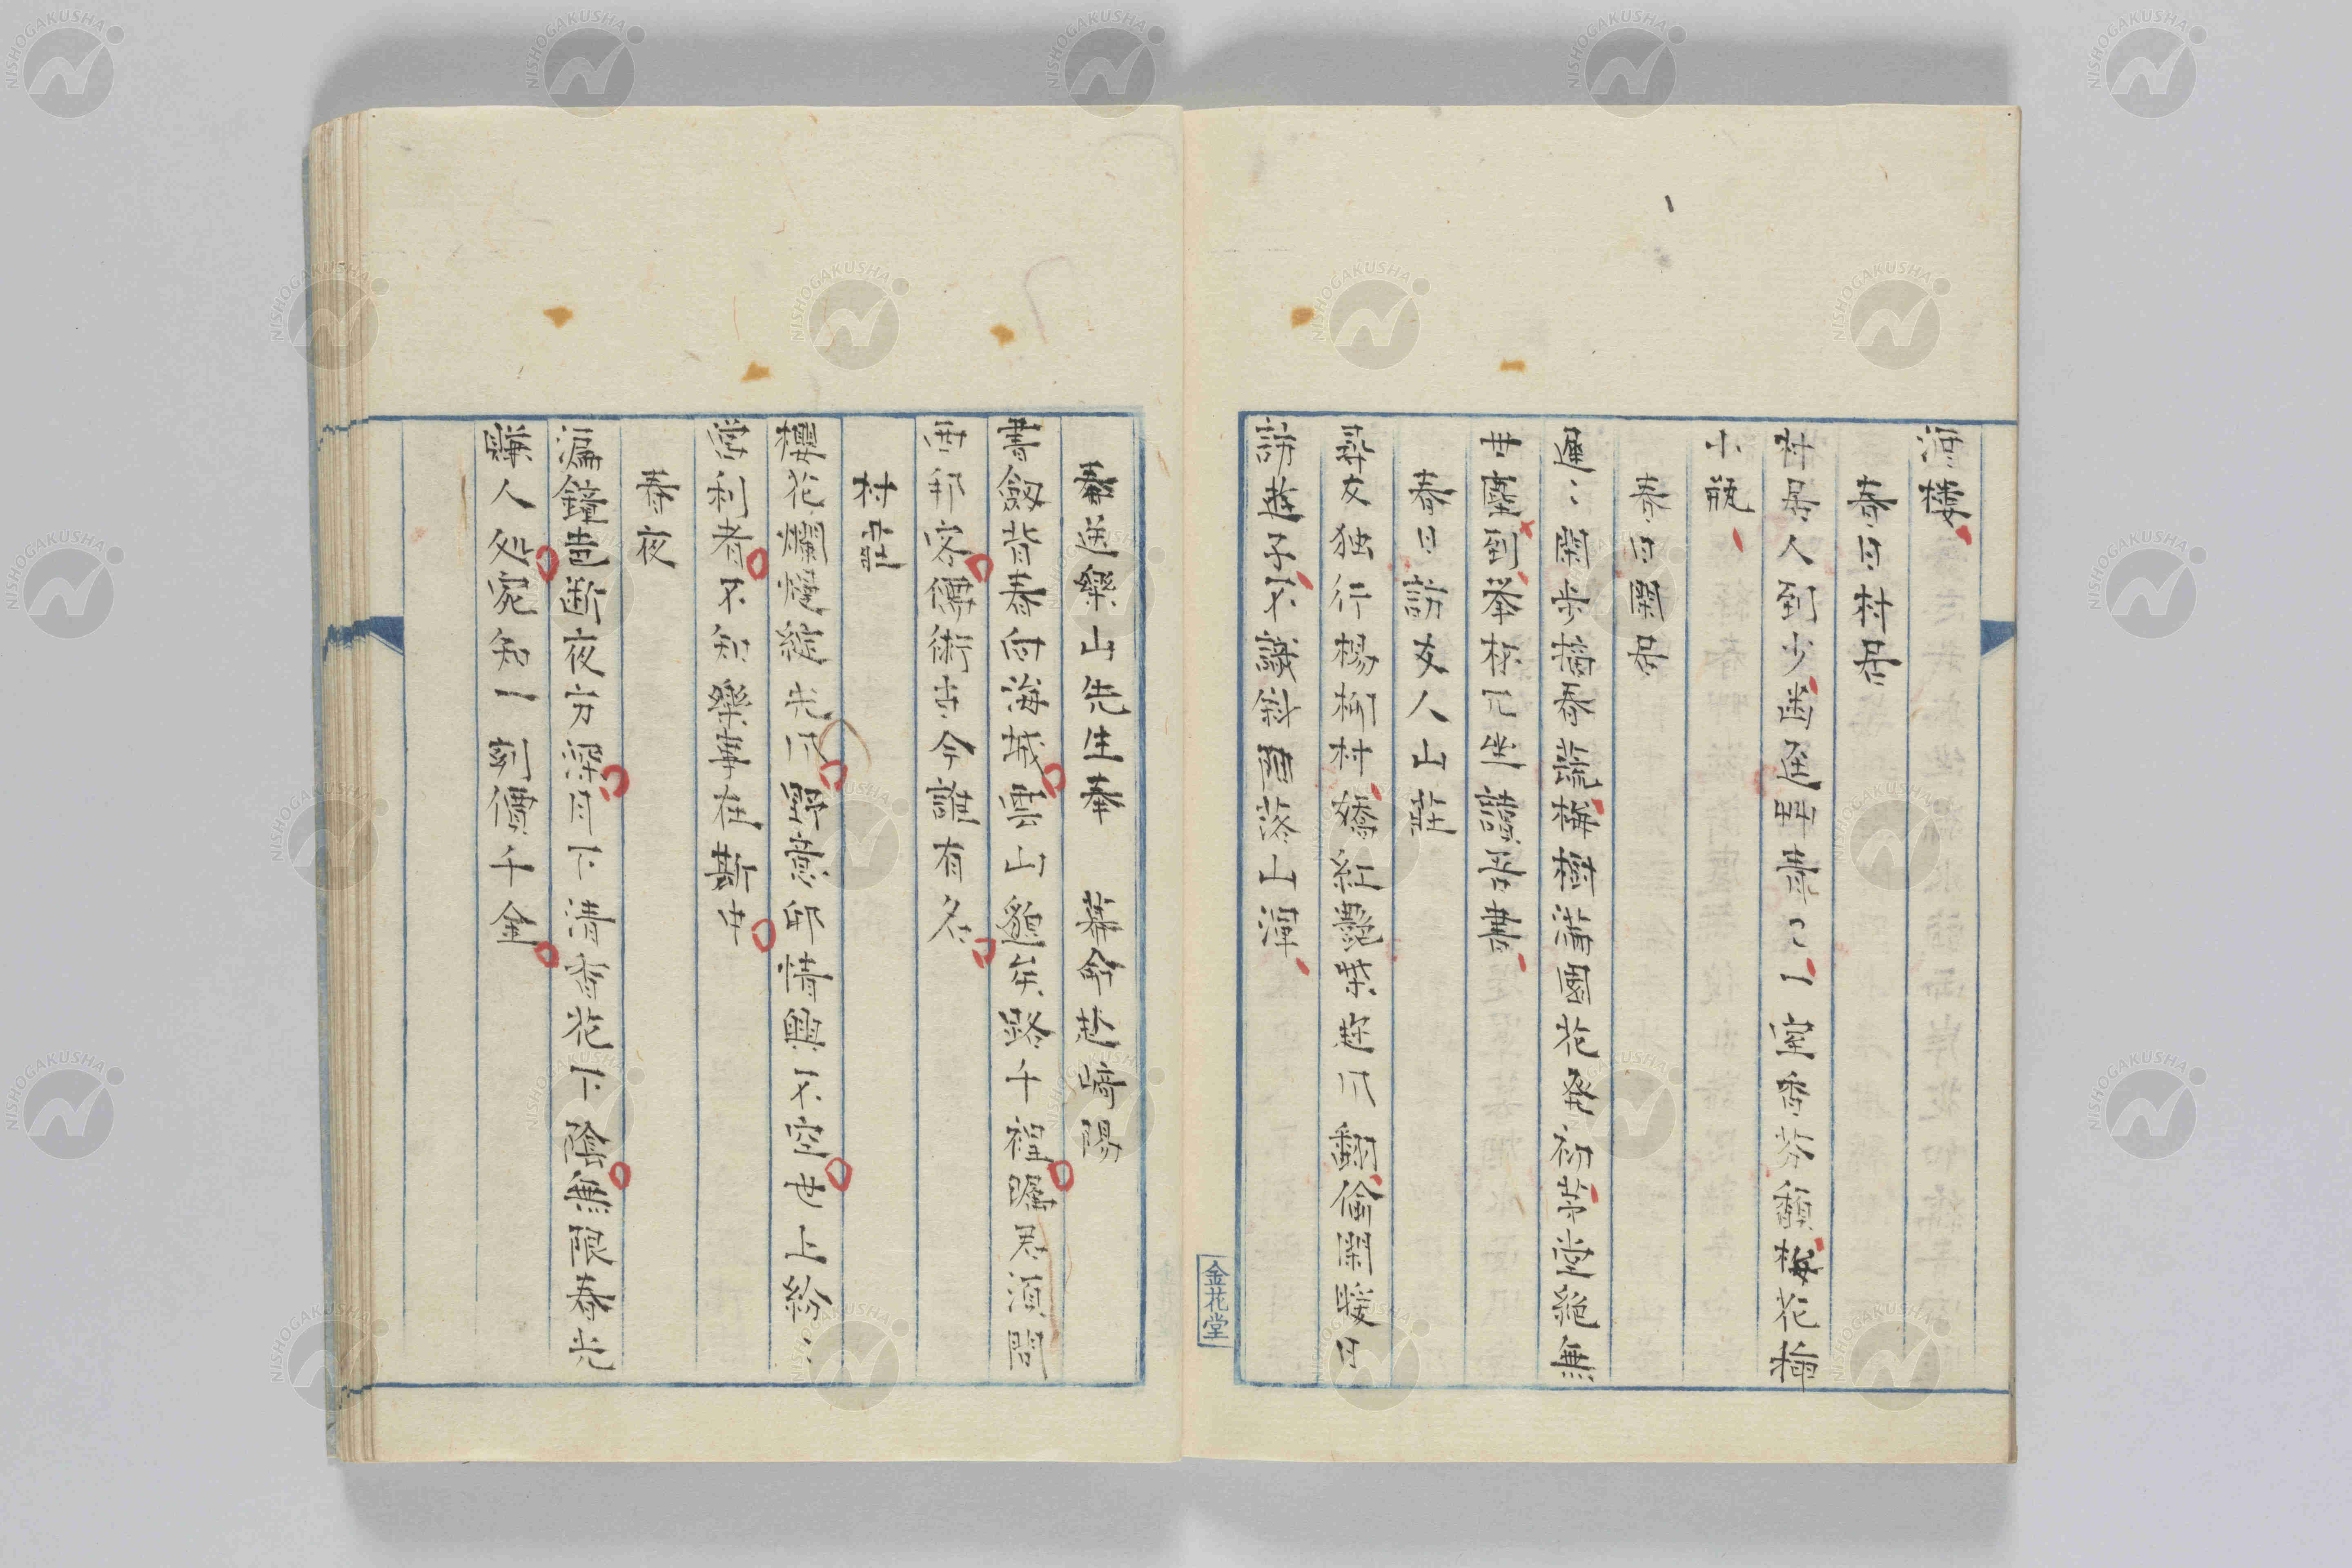 酒樓
春日村居
村居人到少幽逕野青々一室香芬馥梅花挿
小瓶
春日閑居
連〻閑步撫吾龍梅樹滿園花發初草堂絶無
世塵到峯極兀坐讀吾書
春日訪友人山莊
尋友独行楊柳村嬌紅艷紫逆風翻偷閑暖日
訪逆子不識斜陽落山潭
春送樂山先生奉 葬命赴崎陽
書劔背春向海城雲山貌矢路千程躋思須問
西邦客傳術古今誰有名
村莊
櫻花爛熳綻光風野意邱情興不空世上紛〻
営利者不知樂事在斯中
春夜
漏鐘剋断夜方深月下清香花下陰無限春光
賺人処宛知一刻價千金
金花堂